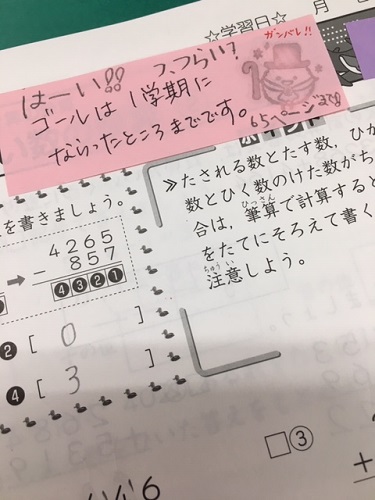 ☆学習日☆ 月
ガンバレ!!
はーい!! つらい?
ゴールは1学期に
ならったところまでです。
65ページまで
ポイント
≫たされる数とたす数，ひか
数とひく数のけた数がち
合は，筆算で計算すると
ひっさん
をたてにそろえて書く
ちゅうい
注意しよう。
を書きましょう。
4265
－ 857
❹❸❷❶
❷[ 0 ]
❹[ 3 ]
□③